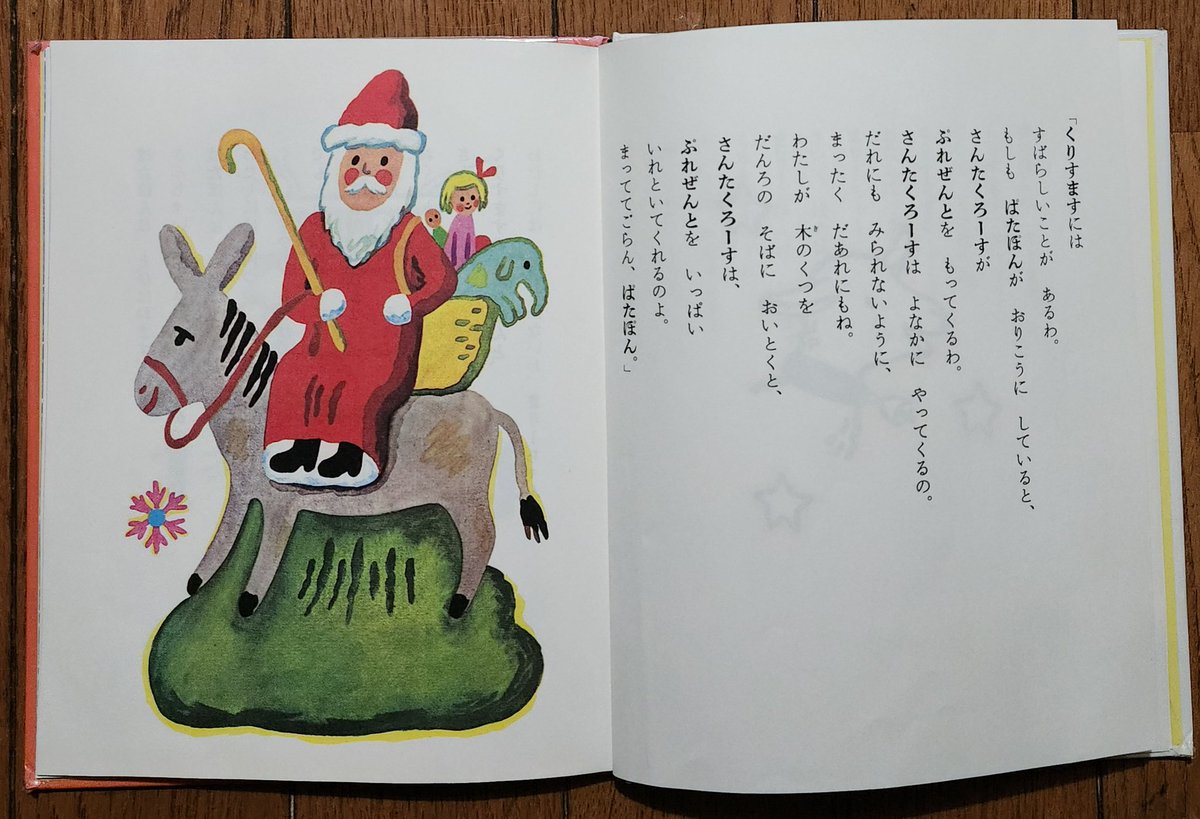 「くりすますには
すばらしいことが　あるわ。
もしも　ぱたぽんが　おりこうに　していると、
さんたくろーすが
ぷれぜんとを　もってくるわ。
さんたくろーすは　よなかに　やってくるの。
だれにも　みられないように、
まったく　だあれにもね。
わたしが　木のくつを
だんろの　そばに　おいとくと、
さんたくろーすは、
ぷれぜんとを　いっぱい
いれといてくれるのよ。
まっててごらん、ぱたぽん。」